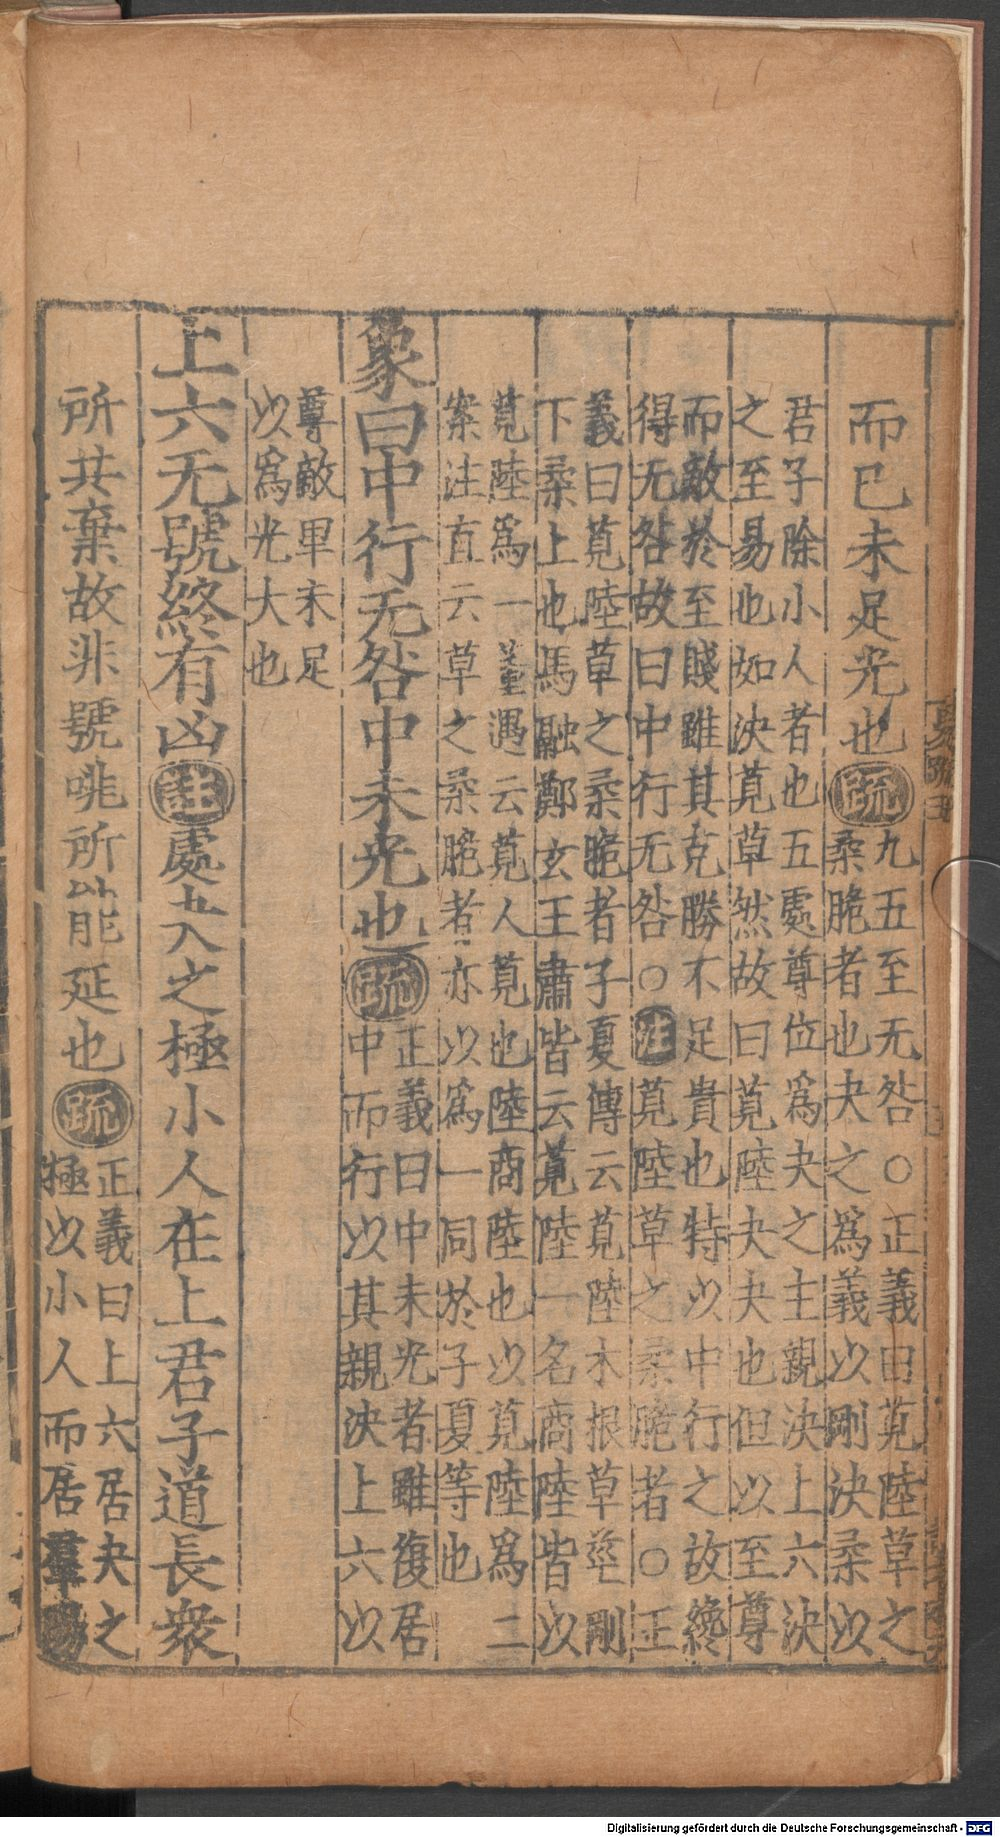 而已未足光也疏九五至无咎○正義曰莧陸草之
柔脆者也夬之為義以剛決柔以
君子除小人者也五處尊位為夬之主親決上六決
之至易也如決莧草然故曰莧陸夬夬也但以至尊
而敵於至賤雖其克勝不足貴也特以中行之故纔
得无咎故曰中行无咎○注莧陸草之柔脆者○正
義曰莧陸草之柔脆者子夏傳云莧陸木根草莖剛
下柔上也馬融鄭玄王肅皆云莧陸一名商陸皆以
莧陸為一董遇云莧人莧也陸商陸也以莧陸為二
案注直云草之柔脆者亦以為一同於子夏等也
象曰中行无咎中未光也疏正義曰中未光者雖復居
中而行以其親決上六以
尊敵卑未足
以為光大也
上六无號終有凶註處夬之極小人在上君子道長衆
所共棄故非號咷所能延也疏正義曰上六居夬之
極以小人而居羣陽
Digitalisierung gefördert durch die Deutsche Forschungsgemeinschaft - DFG